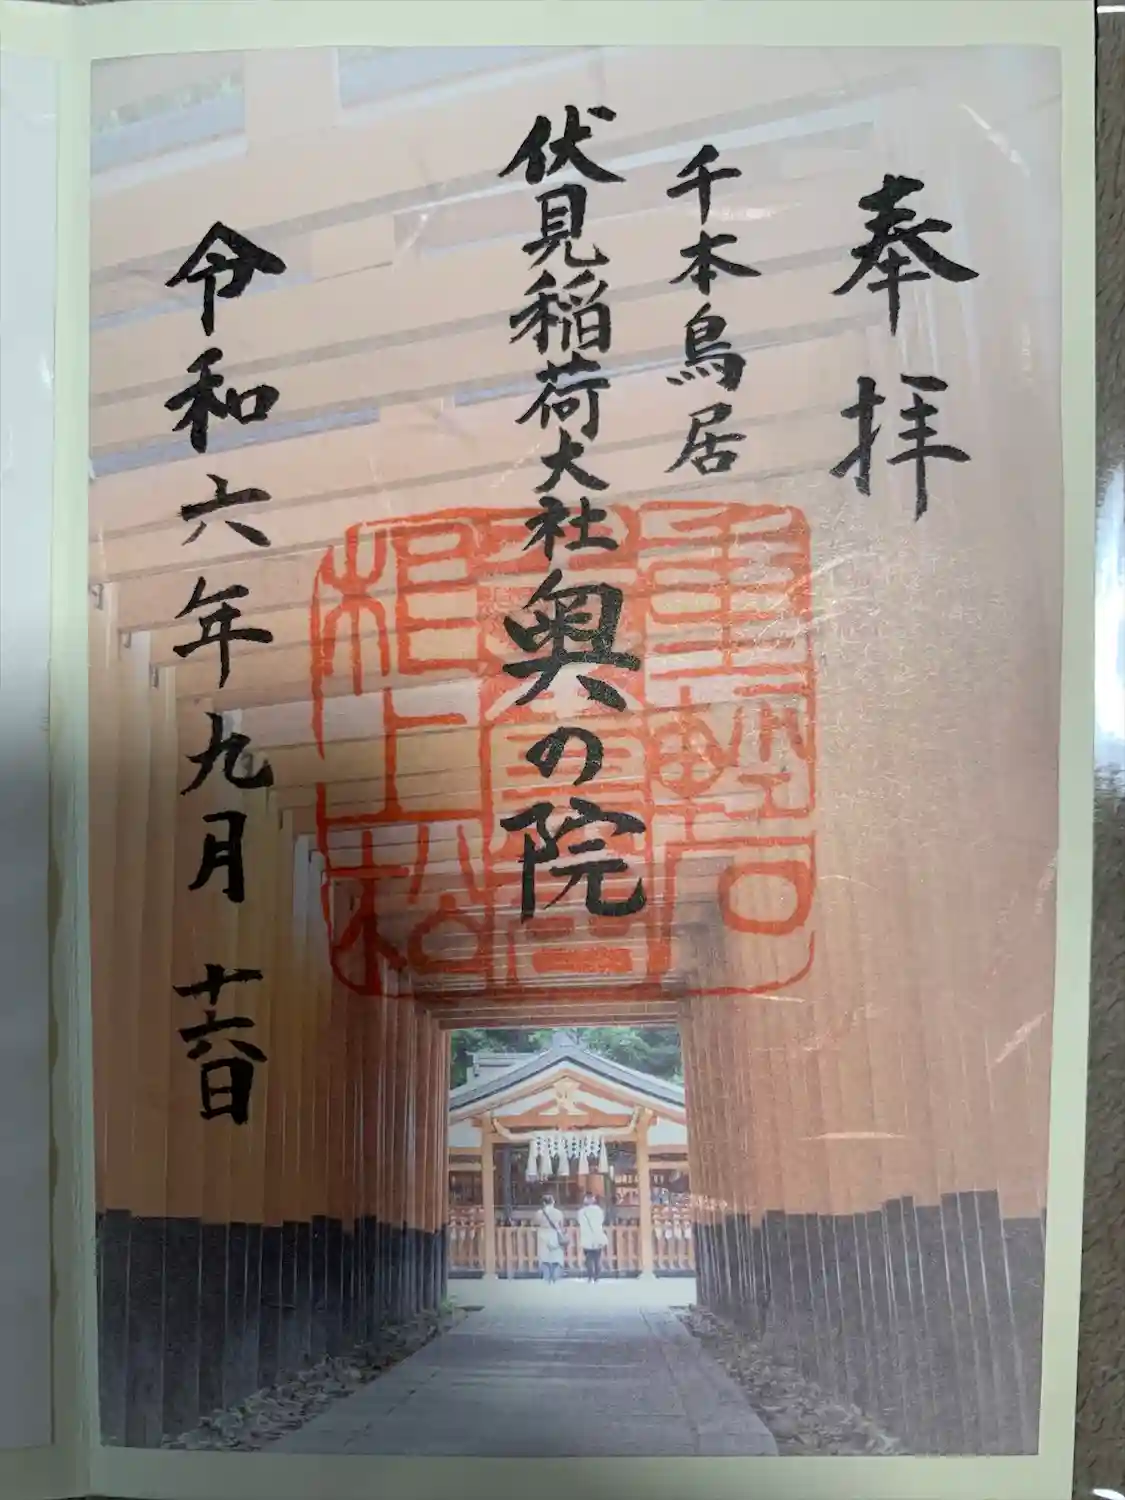 奉拝
千本鳥居
伏見稲荷大社奥の院
令和六年九月十六日